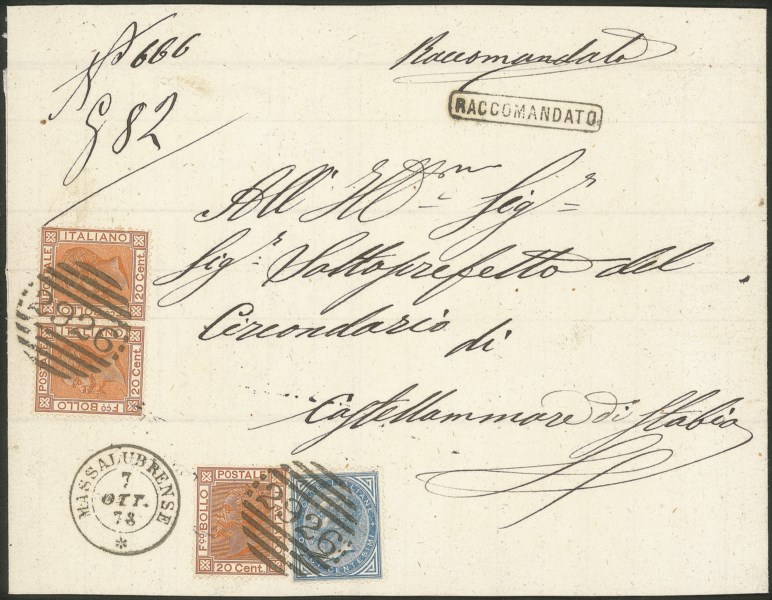 Nº 666
Raccomandato
RACCOMANDATO
82
All' Ill.mo Sig.r
Sig.r Sottoprefetto del
Circondario di
Castellammare di Stabia
POSTALE ITALIANO
20 Cent.
POSTALE ITALIANO
20 Cent.
F.co BOLLO
2926
MASSALUBRENSE
7
OTT.
78
*
F.co BOLLO POSTALE
20 Cent.
2926